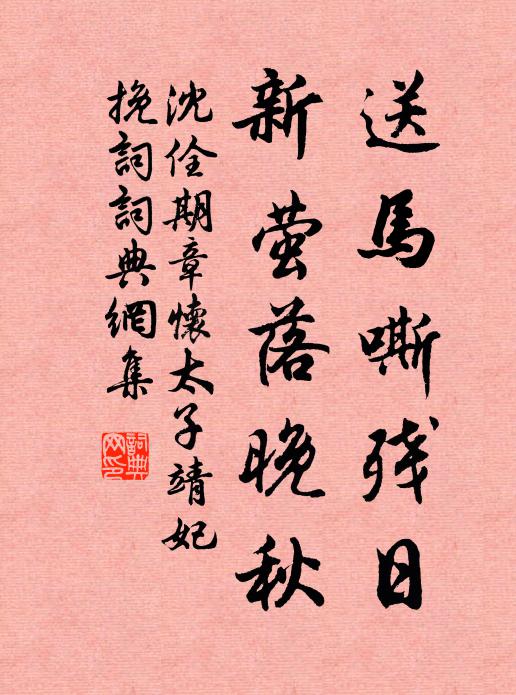 送馬嘶残日
新萤落晚秋
沈佺期章懷太子靖妃
挽詞詞典網集
詞典网印